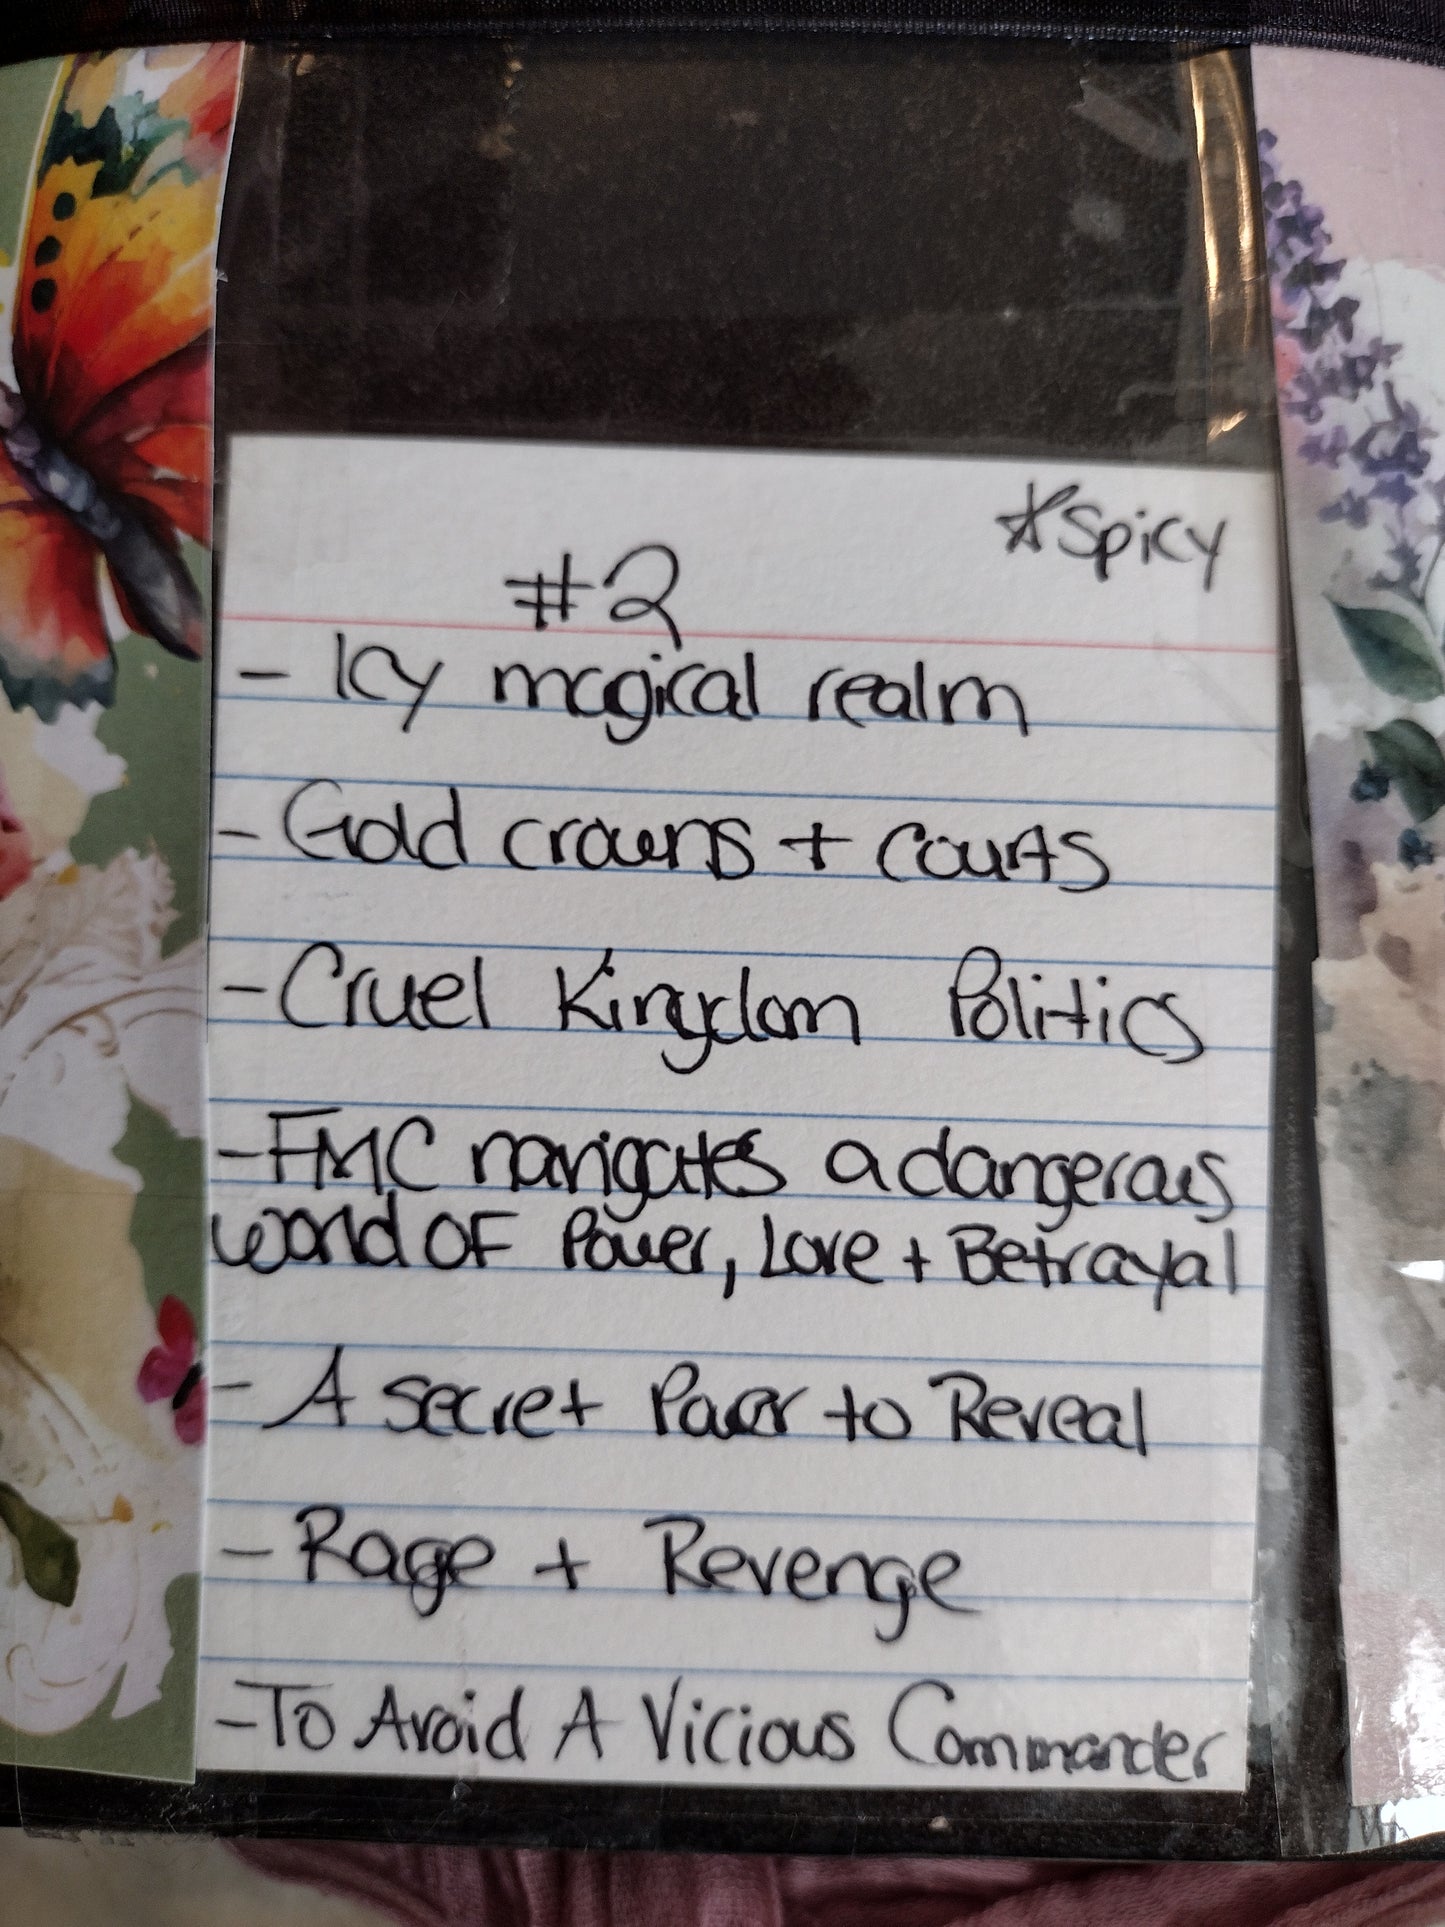 *Spicy
#2
- Icy magical realm
- Gold crowns + courts
- Cruel Kingdom Politics
- FMC navigates a dangerous
world OF Power, Love + Betrayal
- A secret Power to Reveal
- Rage + Revenge
- To Avoid A Vicious Commander